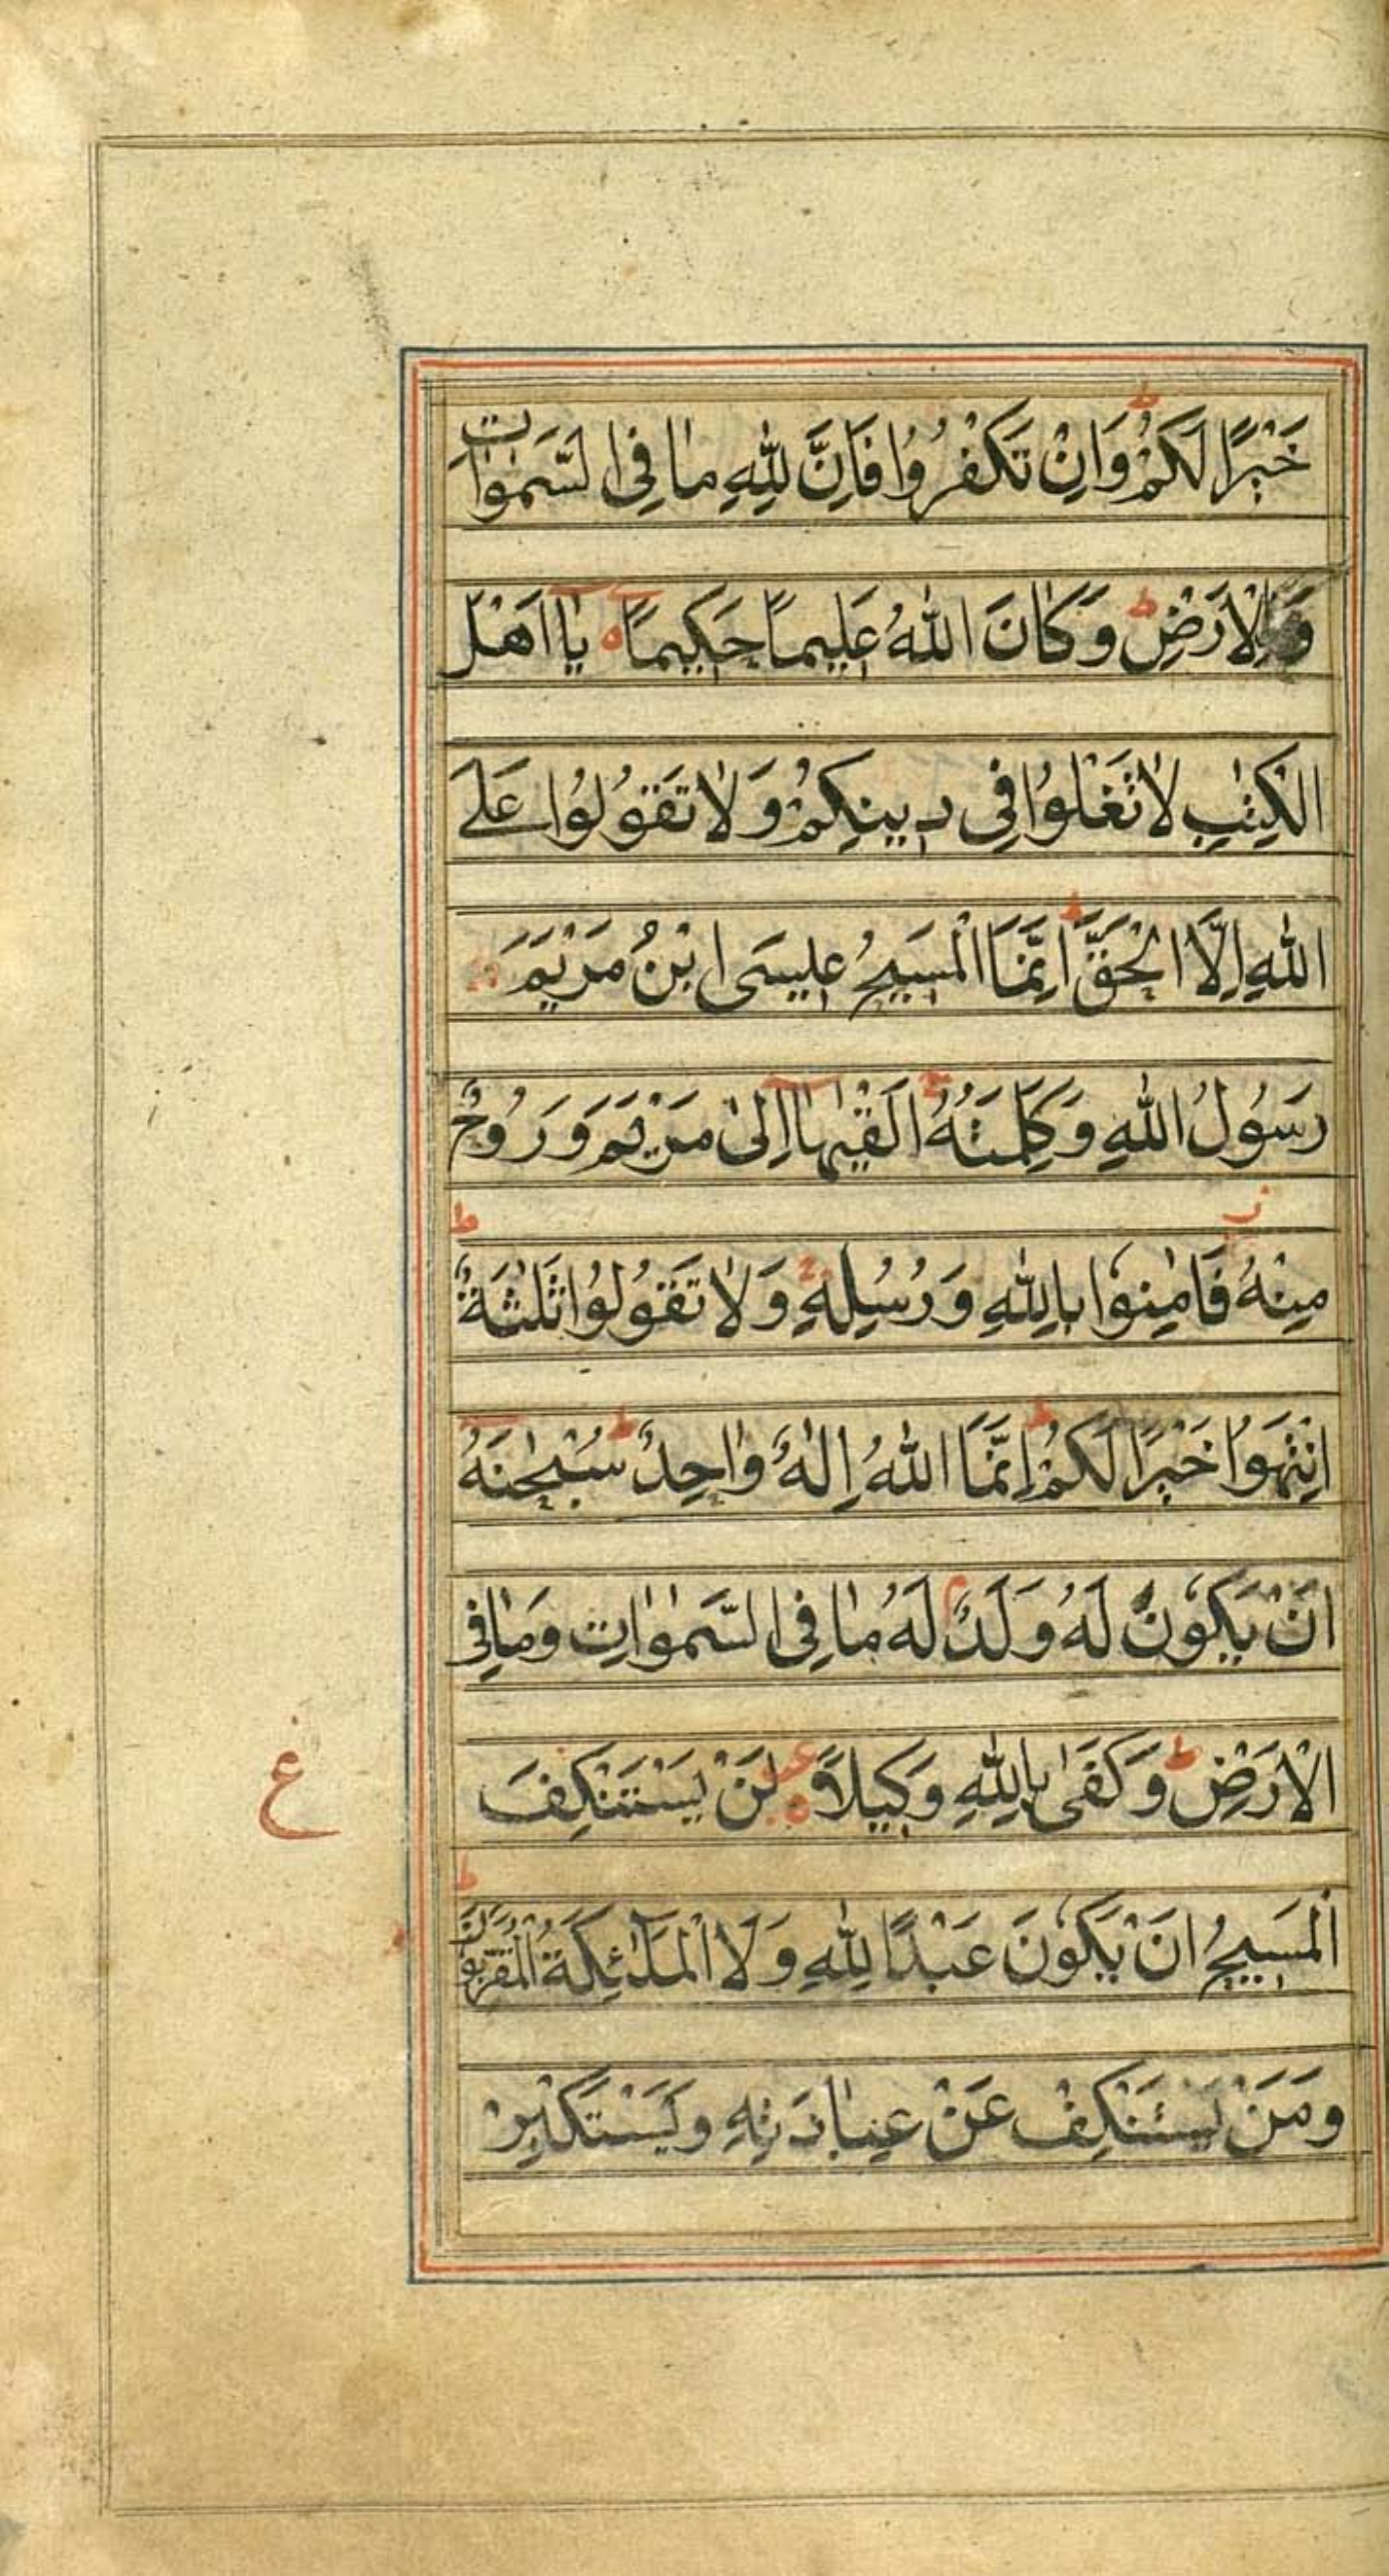 خَيْرًا لَكُمْ ط وَاِنْ تَكْفُرُوا فَاِنَّ لِلّٰهِ مٰا فِى السَّمٰوٰاتِ
وَالْاَرْضِ ط وَكٰانَ اللّٰهُ عَلِيمًا حَكِيمًا ه يٰا اَهْلَ
الْكِتٰبِ لٰا تَغْلُوُا فِى دِينِكُمْ وَلٰا تَقُولُوا عَلَى
اللّٰهِ اِلَّا الْحَقَّ ط اِنَّمَا الْمَسِيحُ عِيسَى ابْنُ مَرْيَمَ
رَسُولُ اللّٰهِ وَكَلِمَتُهُ ج اَلْقٰيهٰا اِلىٰ مَرْيَمَ وَرُوحٌ
مِنْهُ ز فَاٰمِنُوا بِاللّٰهِ وَرُسُلِهِ ج وَلٰا تَقُولُوا ثَلٰثَةٌ ط
اِنْتَهُوا خَيْرًا لَكُمْ ط اِنَّمَا اللّٰهُ اِلٰهٌ وٰاحِدٌ ط سُبْحٰنَهُ
اَنْ يَكُونَ لَهُ وَلَدٌ م لَهُ مٰا فِى السَّمٰوٰاتِ وَمٰا فِى
الْاَرْضِ ط وَكَفىٰ بِاللّٰهِ وَكِيلًا ه ع لَنْ يَسْتَنْكِفَ
ع
الْمَسِيحُ اَنْ يَكُونَ عَبْدًا لِلّٰهِ وَلَا الْمَلٰٓئِكَةُ الْمُقَرَّبُونَ ط
وَمَنْ يَسْتَنْكِفْ عَنْ عِبٰادَتِهِ وَيَسْتَكْبِرْ